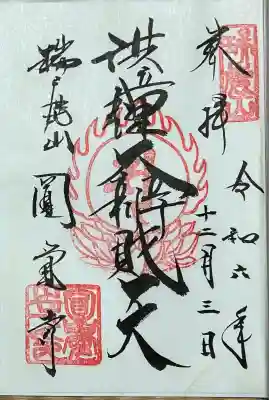 奉拝
令和六年
十二月三日
洪鐘大辨財天
瑞鹿山
圓覚寺